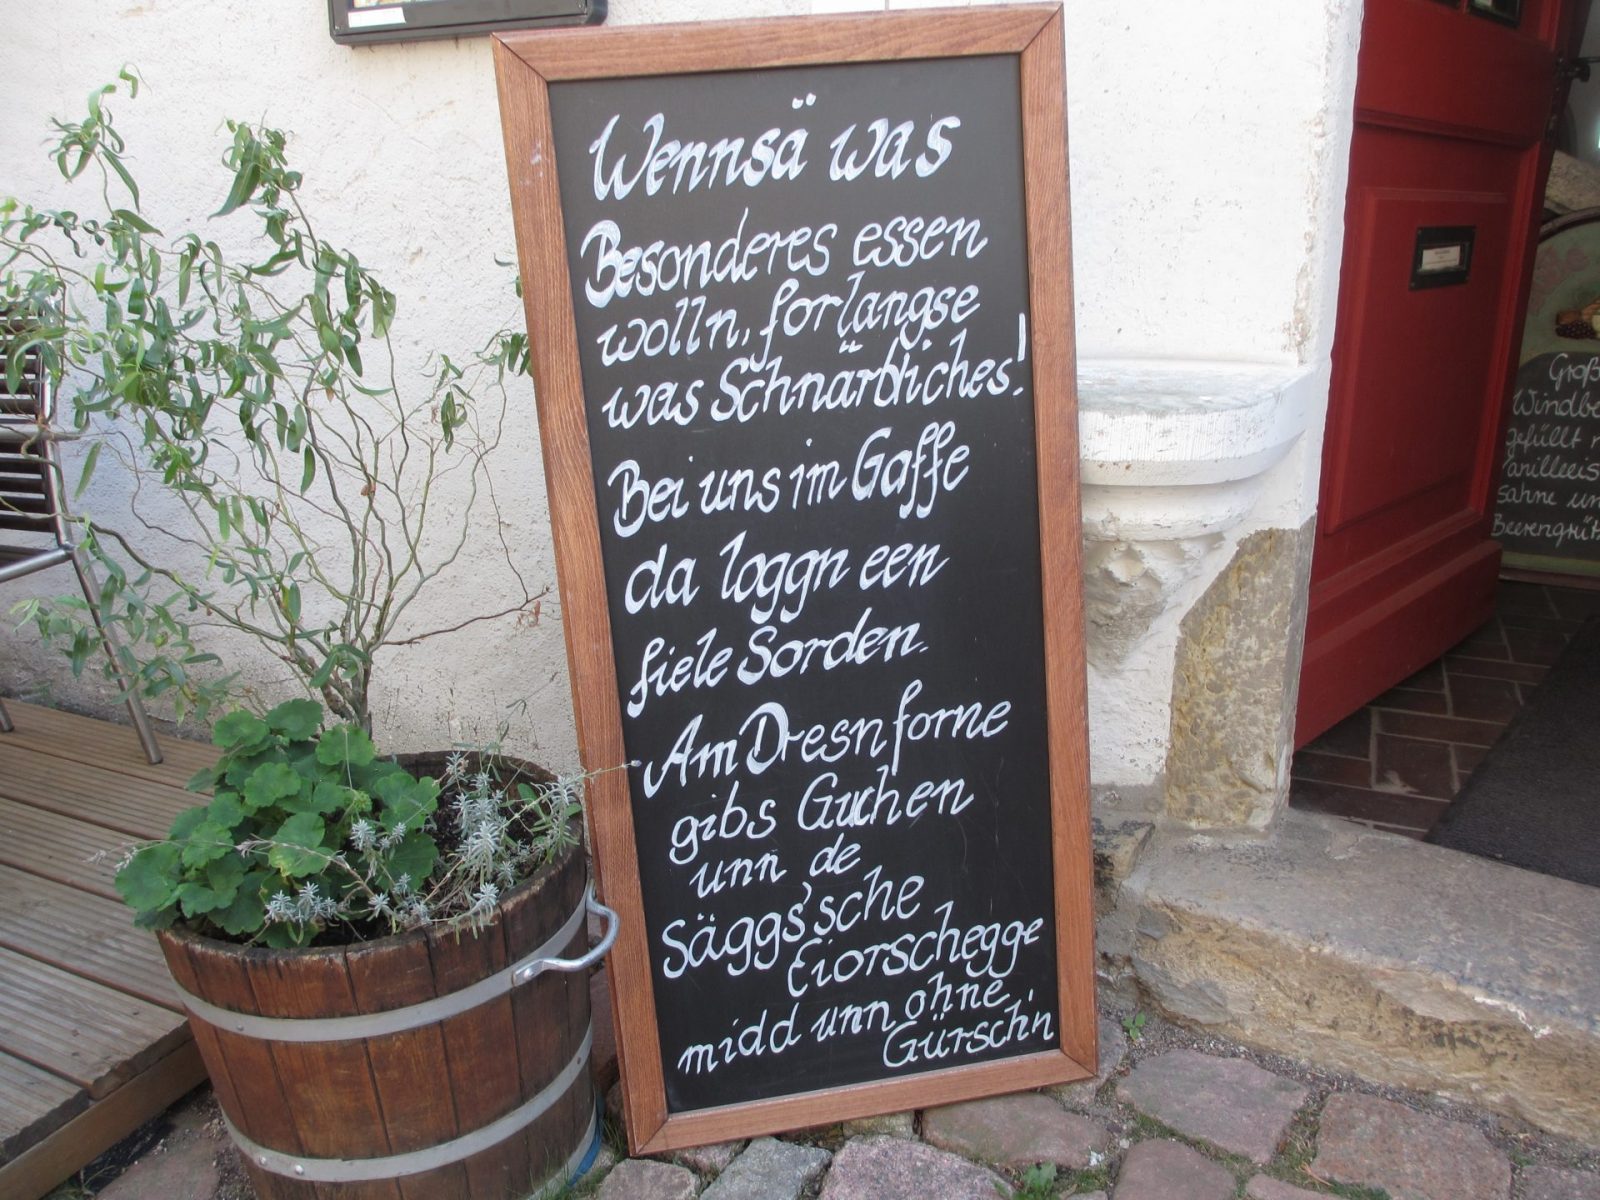 Wennsä was
Besonderes essen
wolln, forlangse
was Schnärbliches!
Bei uns im Gaffe
da loggn een
fiele Sorden.
Am Dresn forne
gibs Guchen
unn de
Säggs'sche
Eiorschegge
midd unn ohne
Gürsch'n
Groß
Windbe
gefüllt
anilleeis
sahne un
Beerengrüt